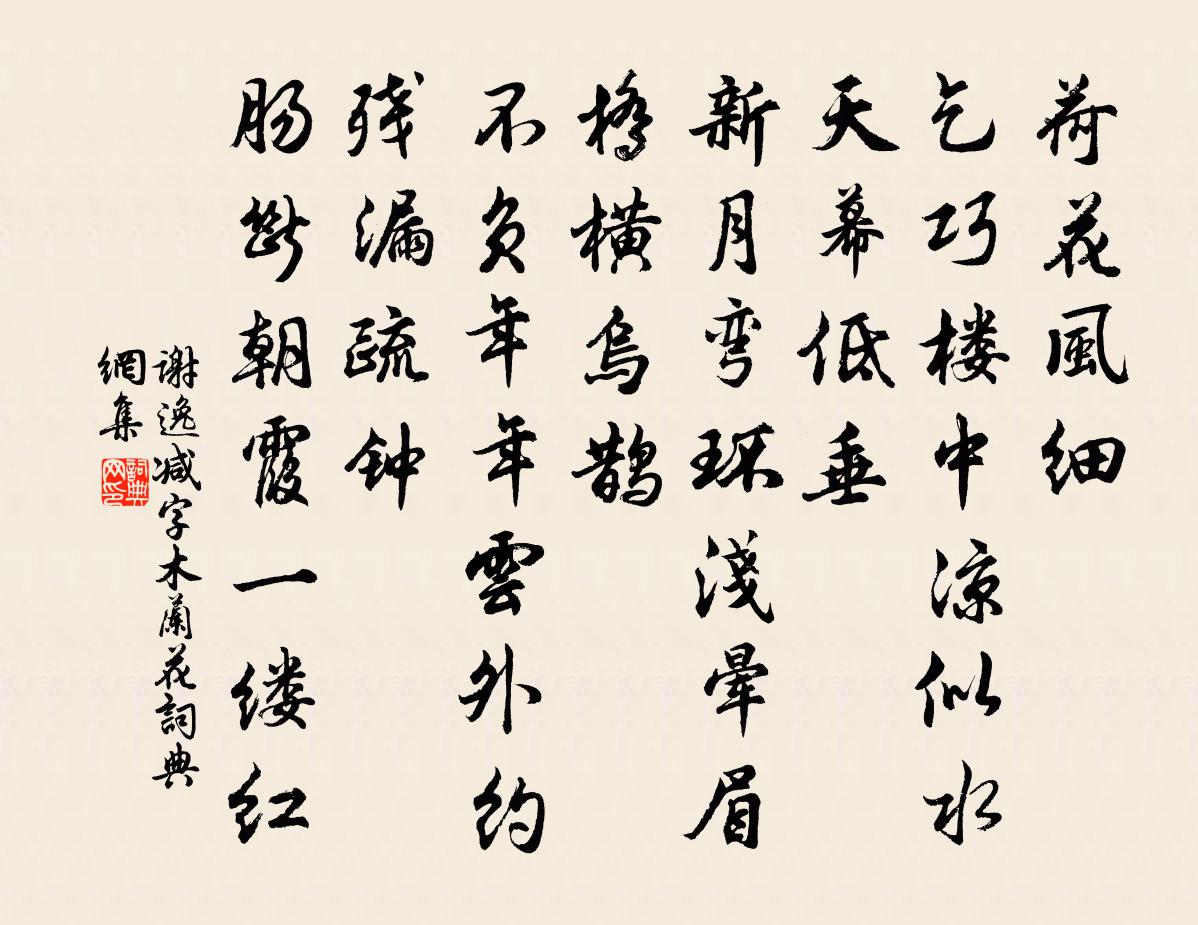 荷花風细
乞巧楼中凉似水
天幕低垂
新月弯环淺暈眉
橋橫烏鵲
不负年年雲外约
残漏疏钟
肠断朝霞一缕红
谢逸减字木蘭花詞典
網集
詞典网印